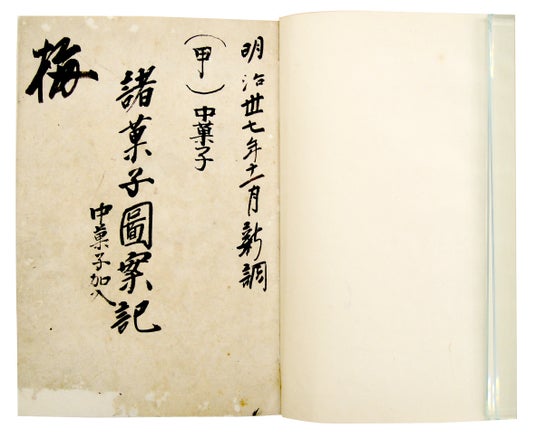 明治丗七年十一月新調
(甲)中菓子
諸菓子圖案記
中菓子加入
梅